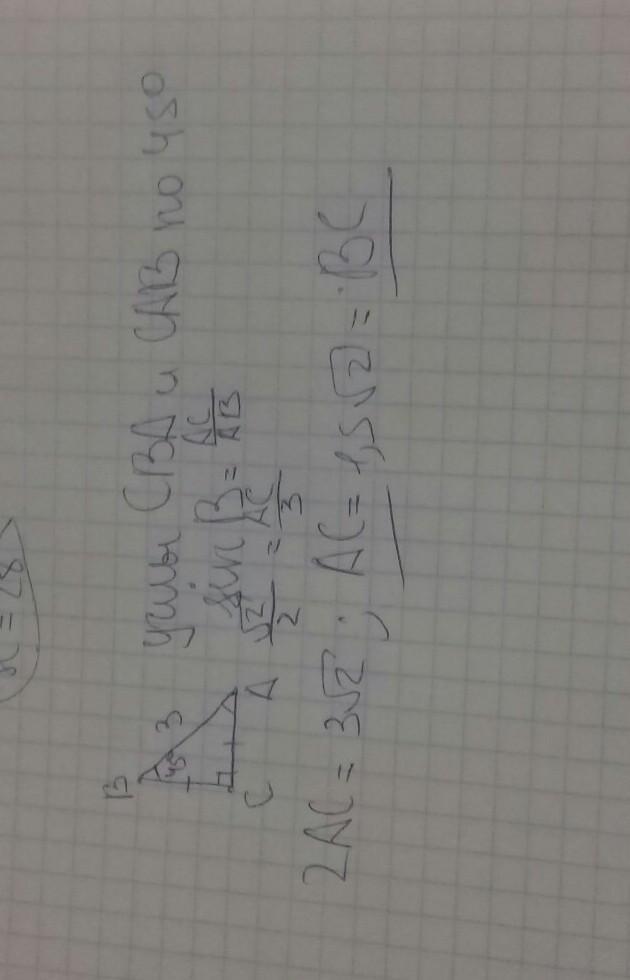 x = 28
B
45°
3
C
A
углы CBA и CAB по 45°
sin B = AC/AB
√2/2 = AC/3
2AC = 3√2 ; AC = 1,5√2 = BC